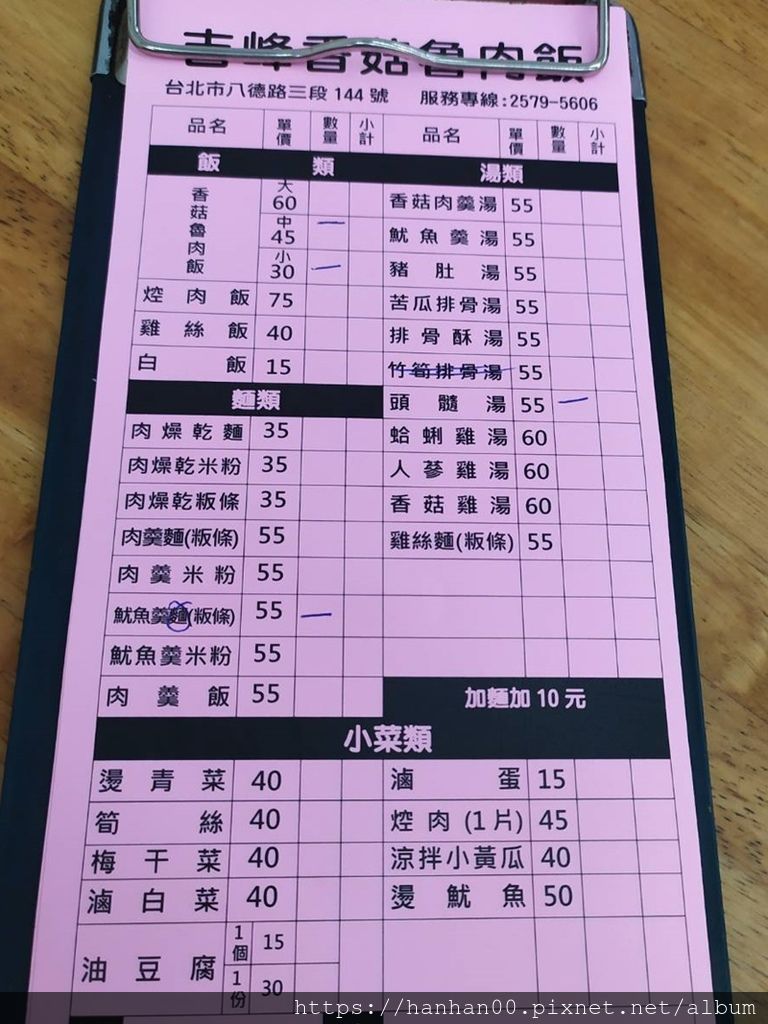 吉峰香菇魯肉飯
台北市八德路三段144號 服務專線:2579-5606
品名 單價 數量 小計 品名 單價 數量 小計
飯類 湯類
香菇魯肉飯 大 60 香菇肉羹湯 55
中 45 魷魚羹湯 55
小 30 豬肚湯 55
焢肉飯 75 苦瓜排骨湯 55
雞絲飯 40 排骨酥湯 55
白飯 15 竹筍排骨湯 55
麵類 頭髓湯 55
肉燥乾麵 35 蛤蜊雞湯 60
肉燥乾米粉 35 人蔘雞湯 60
肉燥乾粄條 35 香菇雞湯 60
肉羹麵(粄條) 55 雞絲麵(粄條) 55
肉羹米粉 55
魷魚羹麵(粄條) 55
魷魚羹米粉 55
肉羹飯 55 加麵加10元
小菜類
燙青菜 40 滷蛋 15
筍絲 40 焢肉(1片) 45
梅干菜 40 涼拌小黃瓜 40
滷白菜 40 燙魷魚 50
油豆腐 1個 15
1份 30
https://hanhan00.pixnet.net/album